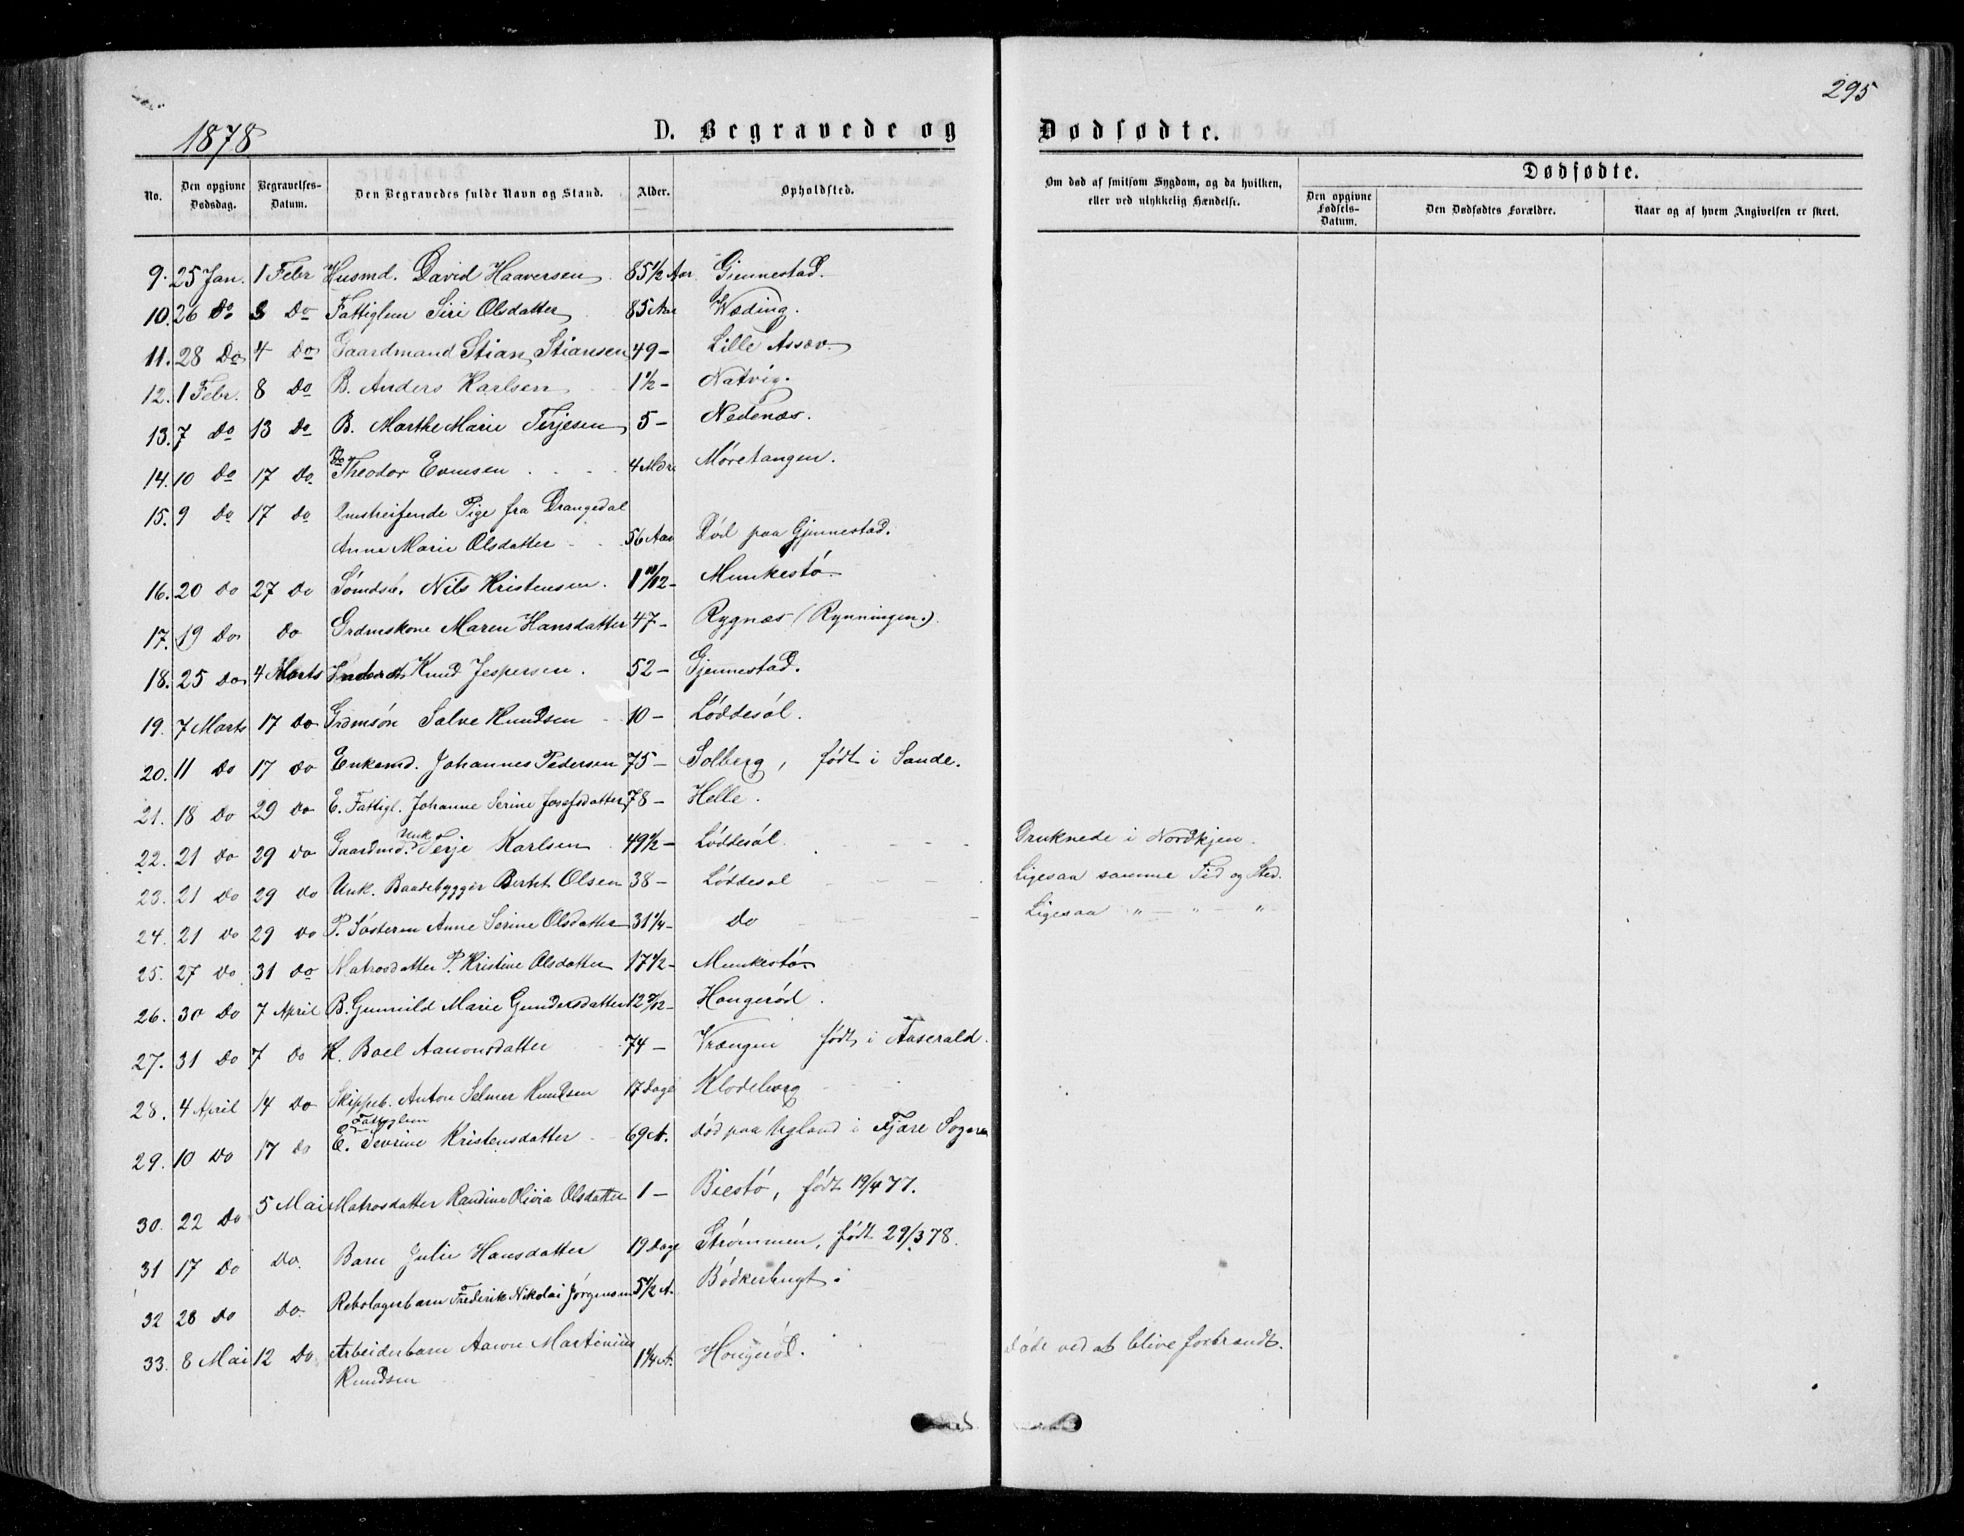 295
1878
D. Begravede og Dødfødte.
No.
Den opgivne Dødsdag.
Begravelses-Datum.
Den Begravedes fulde Navn og Stand.
Alder.
Opholdsted.
Om død af smitsom Sygdom, og da hvilken, eller ved ulykkelig Hændelse.
Dødfødte.
Den opgivne Fødsels-Datum.
Den Dødfødtes Forældre.
Naar og af hvem Angivelsen er skeet.
9. 25 Jan. 1 Febr Husmd. David Haaversen 85½ Aar Gjennestad.
10. 26 Do 3 Do Fattiglem Siri Olsdatter 85 Aar Wæding.
11. 28 Do 4 Do Gaardmand Stian Stiansen 49 - Lille Assev.
12. 1 Febr. 8 Do B. Anders Karlsen 1½ - Natvig.
13. 7 Do 13 Do B. Marthe Marie Terjesen 5 - Nedenæs.
14. 10 Do 17 Do Theodor Evensen 4 Mdr Møretangen.
15. 9 Do 17 Do Omstreifende Pige fra Drangedal
Anne Marie Olsdatter 56 Aar Død paa Gjennestad.
16. 20 Do 27 Do Sømdsb. Nils Kristensen 1 10/12 - Munkestø
17. 19 Do Do Grdmskone Maren Hansdatter 47 - Rygnæs (Rynningen).
18. 25 Do 4 Marts Knud Jespersen 52 - Gjennestad.
19. 7 Marts 17 Do Grdmsøn Salve Knudsen 10 - Løddesøl.
20. 11 Do 17 Do Enkemd. Johannes Pedersen 75 - Solberg, født i Sande.
21. 18 Do 29 Do E. Fattigl. Johanne Serine Josefsdatter 78 - Helle.
22. 21 Do 29 Do Gaardmd. Unk. Terje Karlsen 49½ - Løddesøl. Druknede i Nordkjen.
23. 21 Do 29 Do Unk. Baadebygger Berht Olsen 38 - Løddesøl Ligesaa samme Tid og Sted.
24. 21 Do 29 Do P. Søsteren Anne Serine Olsdatter 31¼ - Do Ligesaa " — " — "
25. 27 Do 31 Do Matrosdatter P. Kristine Olsdatter 17½ - Munkestø
26. 30 Do 7 April B. Gunnild Marie Gundersdatter Hougerød.
27. 31 Do 7 Do K. Boel Aanonsdatter 74 - Vrængen født i Aaserald.
28. 4 April 14 Do Skippeb. Anton Selmer Knudsen 17 Dage Klodeborg
29. 10 Do 17 Do E. Fattiglem Sevrine Kristensdatter 69 A. død paa Ugland i Fjære Sogn
30. 22 Do 5 Mai Matrosdatter Randine Olivia Olsdatter 1 - Biestø, født 19/4 77.
31 17 Do Do. Barn Julie Hansdatter 19 Dage Strømmen, født 29/3 78.
32 28 Do Do. Rebslagerbarn Frederik Nikolai Jørgensen 5½ A. Bødkerbugt.
33. 8 Mai 12 Do Arbeiderbarn Aanon Martinius 1¼ A. Hougerød. Døde ved at blive forbrændt.
Knudsen